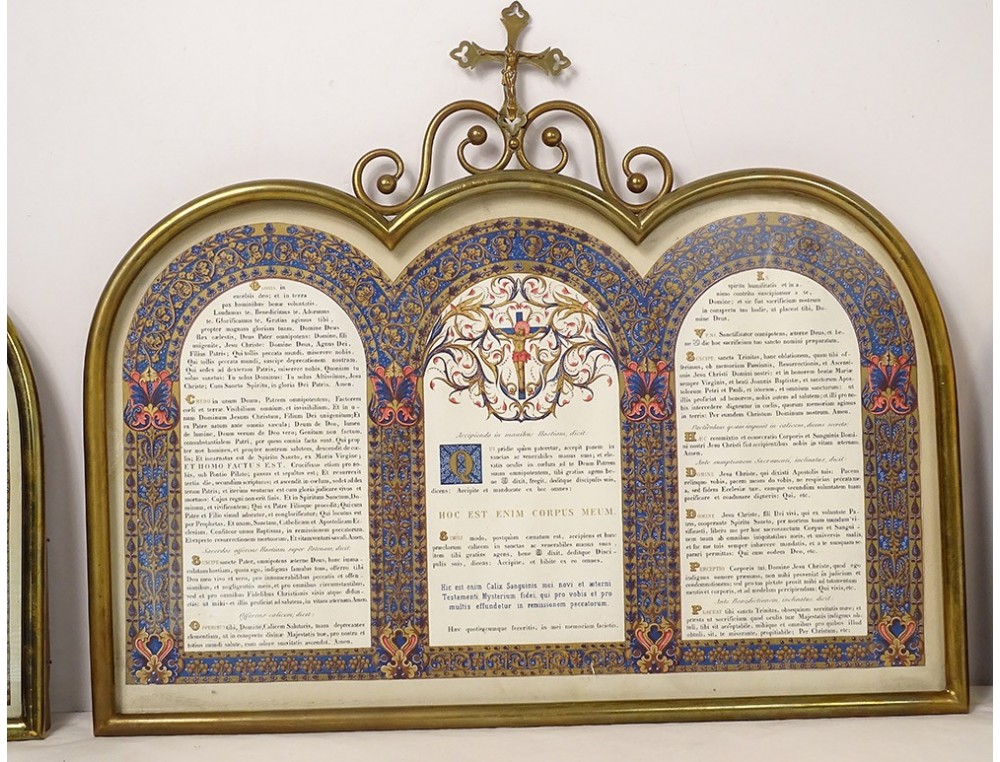 GLORIA in
excelsis deo; et in terra
pax hominibus bonæ voluntatis.
Laudamus te. Benedicimus te. Adoramus
te. Glorificamus te. Gratias agimus tibi,
propter magnam gloriam tuam. Domine Deus
Rex cœlestis, Deus Pater omnipotens: Domine, fili
unigenite, Jesu Christe: Domine Deus, Agnus Dei,
Filius Patris; Qui tollis peccata mundi, miserere nobis.
Qui tollis peccata mundi, suscipe deprecationem nostram.
Qui sedes ad dexteram Patris, miserere nobis. Quoniam tu
solus sanctus: Tu solus Dominus: Tu solus Altissimus, Jesu
Christe; Cum Sancto Spiritu, in gloria Dei Patris. Amen.
CREDO in unum Deum, Patrem omnipotentem, Factorem
cœli et terræ Visibilium omnium, et invisibilium. Et in u-
num Dominum Jesum Christum, Filium Dei unigenitum; Et
ex Patre natum ante omnia sæcula; Deum de Deo, lumen
de lumine, Deum verum de Deo vero; Genitum non factum,
consubstantialem Patri, per quem omnia facta sunt. Qui prop
ter nos homines, et propter nostram salutem, descendit de cœ-
lis; Et incarnatus est de Spiritu Sancto, ex Maria Virgine;
ET HOMO FACTUS EST. Crucifixus etiam pro no-
bis, sub Pontio Pilato; passus et sepultus est; Et resurrexit
tertia die, secundum scripturas; et ascendit in cœlum, sedet ad dex
teram Patris; et iterum venturus est cum gloria judicare vivos et
mortuos: Cujus regni non erit finis. Et in Spiritum Sanctum, Do-
minum, et vivificantem; Qui ex Patre Filioque procedit; Qui cum
Patre et Filio simul adoratur, et conglorificatur; Qui locutus est
per Prophetas. Et unam, Sanctam, Catholicam et Apostolicam Ec-
clesiam. Confiteor unum Baptisma, in remissionem peccatorum.
Et expecto resurrectionem mortuorum, Et vitam venturi sæculi. Amen.
Sacerdos offerens Hostiam super Patenam, dicit:
SUSCIPE sancte Pater, omnipotens æterne Deus, hanc imma-
culatam hostiam, quam ego, indignus famulus tuus, offero tibi
Deo meo vivo et vero, pro innumerabilibus peccatis et offen-
sionibus, et negligentiis meis, et pro omnibus circumstantibus,
sed et pro omnibus Fidelibus Christianis vivis atque defun-
ctis: ut mihi et illis proficiat ad salutem, in vitam æternam. Amen.
Offerens calicem, dicit:
OFFERIMUS tibi, Domine, Calicem Salutaris, tuam deprecantes
clementiam, ut in conspectu divinæ Majestatis tuæ, pro nostra et
totius mundi salute, cum odore suavitatis ascendat. Amen.
Accipiendo in manibus Hostiam, dicit
QUI pridie quam pateretur, accepit panem in
sanctas ac venerabiles manus suas; et ele-
vatis oculis in cœlum ad te Deum Patrem
suum omnipotentem, tibi gratias agens be-
ne dixit, fregit, deditque discipulis suis,
dicens: Accipite et manducate ex hoc omnes:
HOC EST ENIM CORPUS MEUM.
SIMILI modo, postquam cœnatum est, accipiens et hunc
præclarum calicem in sanctas ac venerabiles manus suas
item tibi gratias agens, bene dixit, deditque Disci-
pulis suis, dicens: Accipite, et bibite ex eo omnes:
Hic est enim Calix Sanguinis mei novi et æterni
Testamenti; Mysterium fidei, qui pro vobis et pro
multis effundetur in remissionem peccatorum.
Hæc quotiescumque feceritis, in mei memoriam facietis.
IN
spiritu humilitatis et in a-
nimo contrito suscipiamur a te,
Domine; et sic fiat sacrificium nostrum
in conspectu tuo hodie, ut placeat tibi, Do-
mine Deus.
VENI Sanctificator omnipotens, æterne Deus, et be-
ne dic hoc sacrificium tuo sancto nomini preparatum.
SUSCIPE, sancta Trinitas, hanc oblationem, quam tibi of-
ferimus, ob memoriam Passionis, Resurrectionis, et Ascensi-
onis Jesu Christi Domini nostri; et in honorem beatæ Mariæ
semper Virginis, et beati Joannis Baptistæ, et sanctorum Apos-
tolorum Petri et Pauli, et istorum, et omnium sanctorum; ut
illis proficiat ad honorem, nobis autem ad salutem; et illi pro no-
bis intercedere dignentur in cœlis, quorum memoriam agimus
in terris: Per eumdem Christum Dominum nostrum. Amen.
Particulam quam imponit in calicem, dicens secreto:
HÆC commixtio et consecratio Corporis et Sanguinis Domi-
ni nostri Jesu Christi fiat accipientibus nobis in vitam æternam.
Amen.
Ante sumptionem Sacramenti, inclinatus, dicit:
DOMINE Jesu Christe, qui dixisti Apostolis tuis: Pacem
relinquo vobis, pacem meam do vobis, ne respicias peccata me
a, sed fidem Ecclesiæ tuæ, eamque secundum voluntatem tuam
pacificare et coadunare digneris: Qui, etc.
DOMINE Jesu Christe, fili Dei vivi, qui ex voluntate Pa-
tris, cooperante Spiritu Sancto, per mortem tuam mundum vi-
vificasti, libera me per hoc sacrosanctum Corpus et Sangui-
nem tuum ab omnibus iniquitatibus meis, et universis malis,
et fac me tuis semper inhærere mandatis, et a te nunquam se-
parari permittas: Qui cum eodem Deo, etc.
PERCEPTIO Corporis tui, Domine Jesu Christe, quod ego
indignus sumere præsumo, non mihi proveniat in judicium et
condemnationem; sed pro tua pietate prosit mihi ad tutamentum
mentis et corporis, et ad medelam percipiendam: Qui vivis, etc.
Ante Benedictionem inclinatus, dicit:
PLACEAT tibi sancta Trinitas, obsequium servitutis meæ; et
præsta ut sacrificium quod oculis tuæ Majestatis indignus ob-
tuli, tibi sit acceptabile, mihique et omnibus pro quibus illud
obtuli, sit, te miserante, propitiabile: Per Christum, etc.